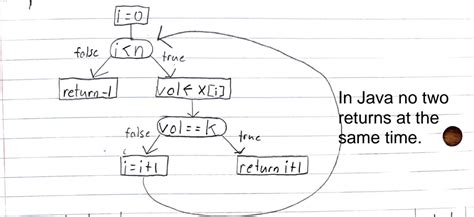 i=0
false
i<n
true
return-1
val← x[i]
false
val==k
true
i=i+1
return i+1
In Java no two
returns at the
same time.